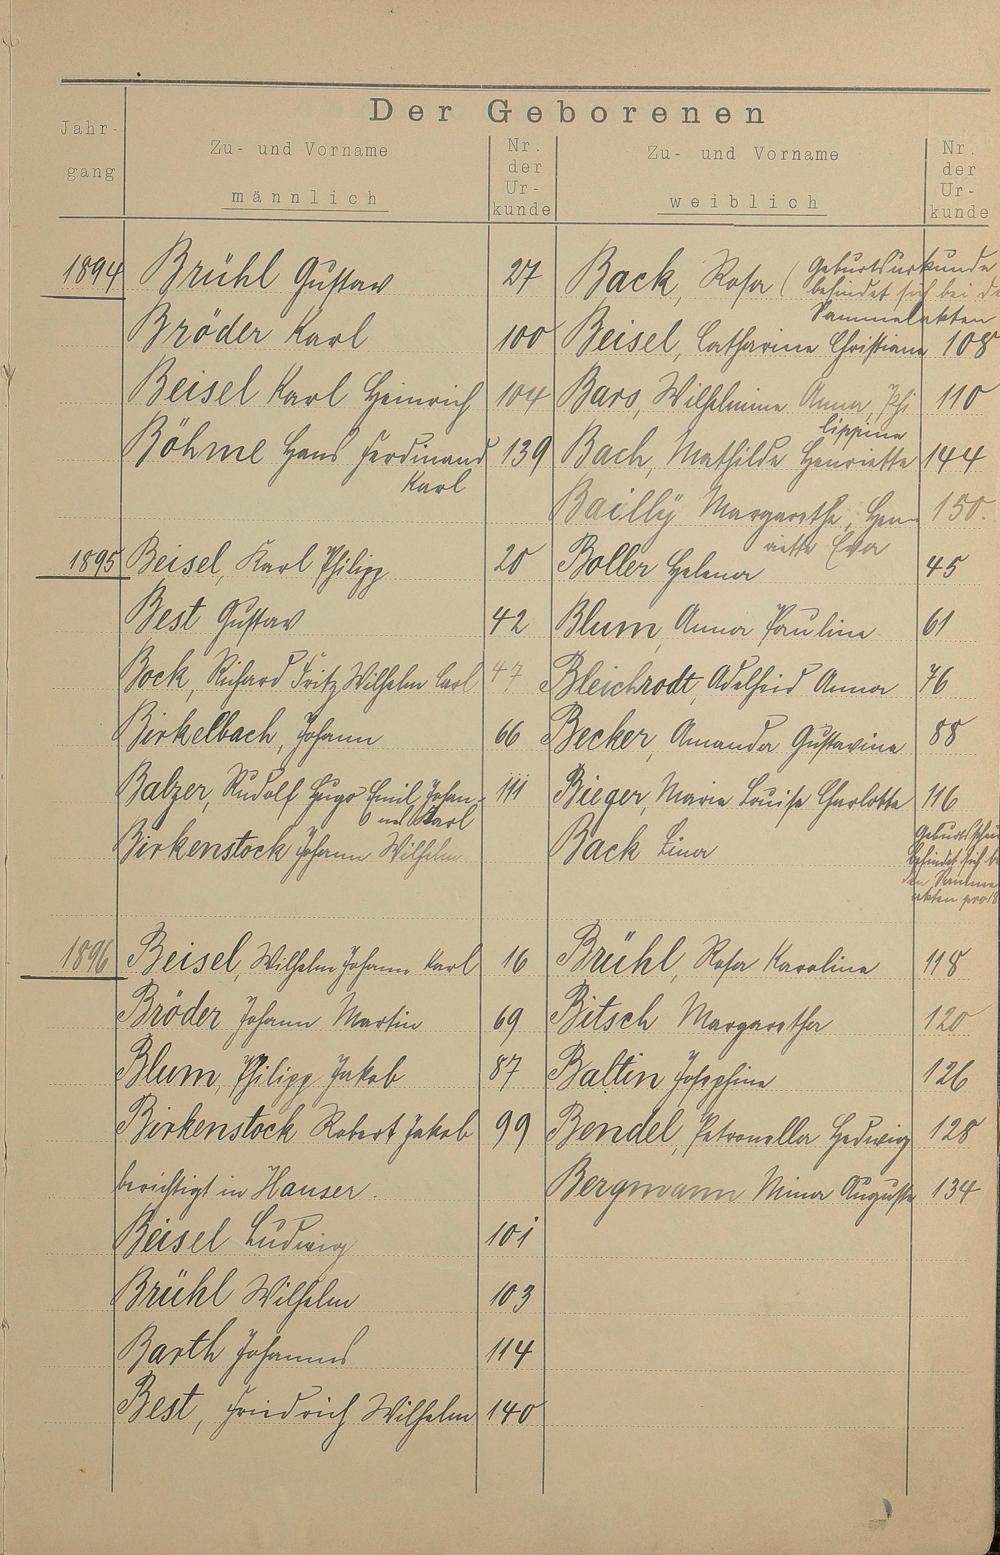 Der Geborenen
Jahr-
gang
Zu- und Vorname
männlich
Nr.
der
Ur-
kunde
Zu- und Vorname
weiblich
Nr.
der
Ur-
kunde
1894 Brühl Gustav 27 Back, Rosa (Geburtsurkunde
befindet sich bei
Sammelakten
Bröder Karl 100 Beisel, Catharine Christiane 108
Beisel Karl Heinrich 104 Bars, Wilhelmine Anna, Phi
lippine 110
Böhme Hans Ferdinand 139 Bach, Mathilde Henriette 144
Karl
Bailly Margarethe, Hen- 150.
riette Eva
1895 Beisel, Karl Philipp 20 Boller Helena 45
Best Gustav 42 Blum, Anna Pauline 61
Bock, Richard Fritz Wilhelm Carl 47 Bleichrodt, Adelheid Anna 76
Birkelbach, Johann 66 Becker, Amanda Gustavine 88
Balzer, Rudolf Hugo Emil Johan- 111 Bieger, Marie Louise Charlotte 116
nes Karl
Birkenstock Johann Wilhelm Back Lina Geburtsschein
befindet sich
den
akten
1896 Beisel, Wilhelm Johann Karl 16 Brühl, Rosa Karoline 118
Bröder Johann Martin 69 Bitsch Margaretha 120
Blum, Philipp Jakob 87 Baltin Josephine 126
Birkenstock Robert Jakob 99 Bendel, Petronella Hedwig 128
berichtigt in Hauser. Bergmann Mina Auguste 134
Beisel Ludwig 101
Brühl Wilhelm 103
Barth Johannes 114
Best, Friedrich Wilhelm 140